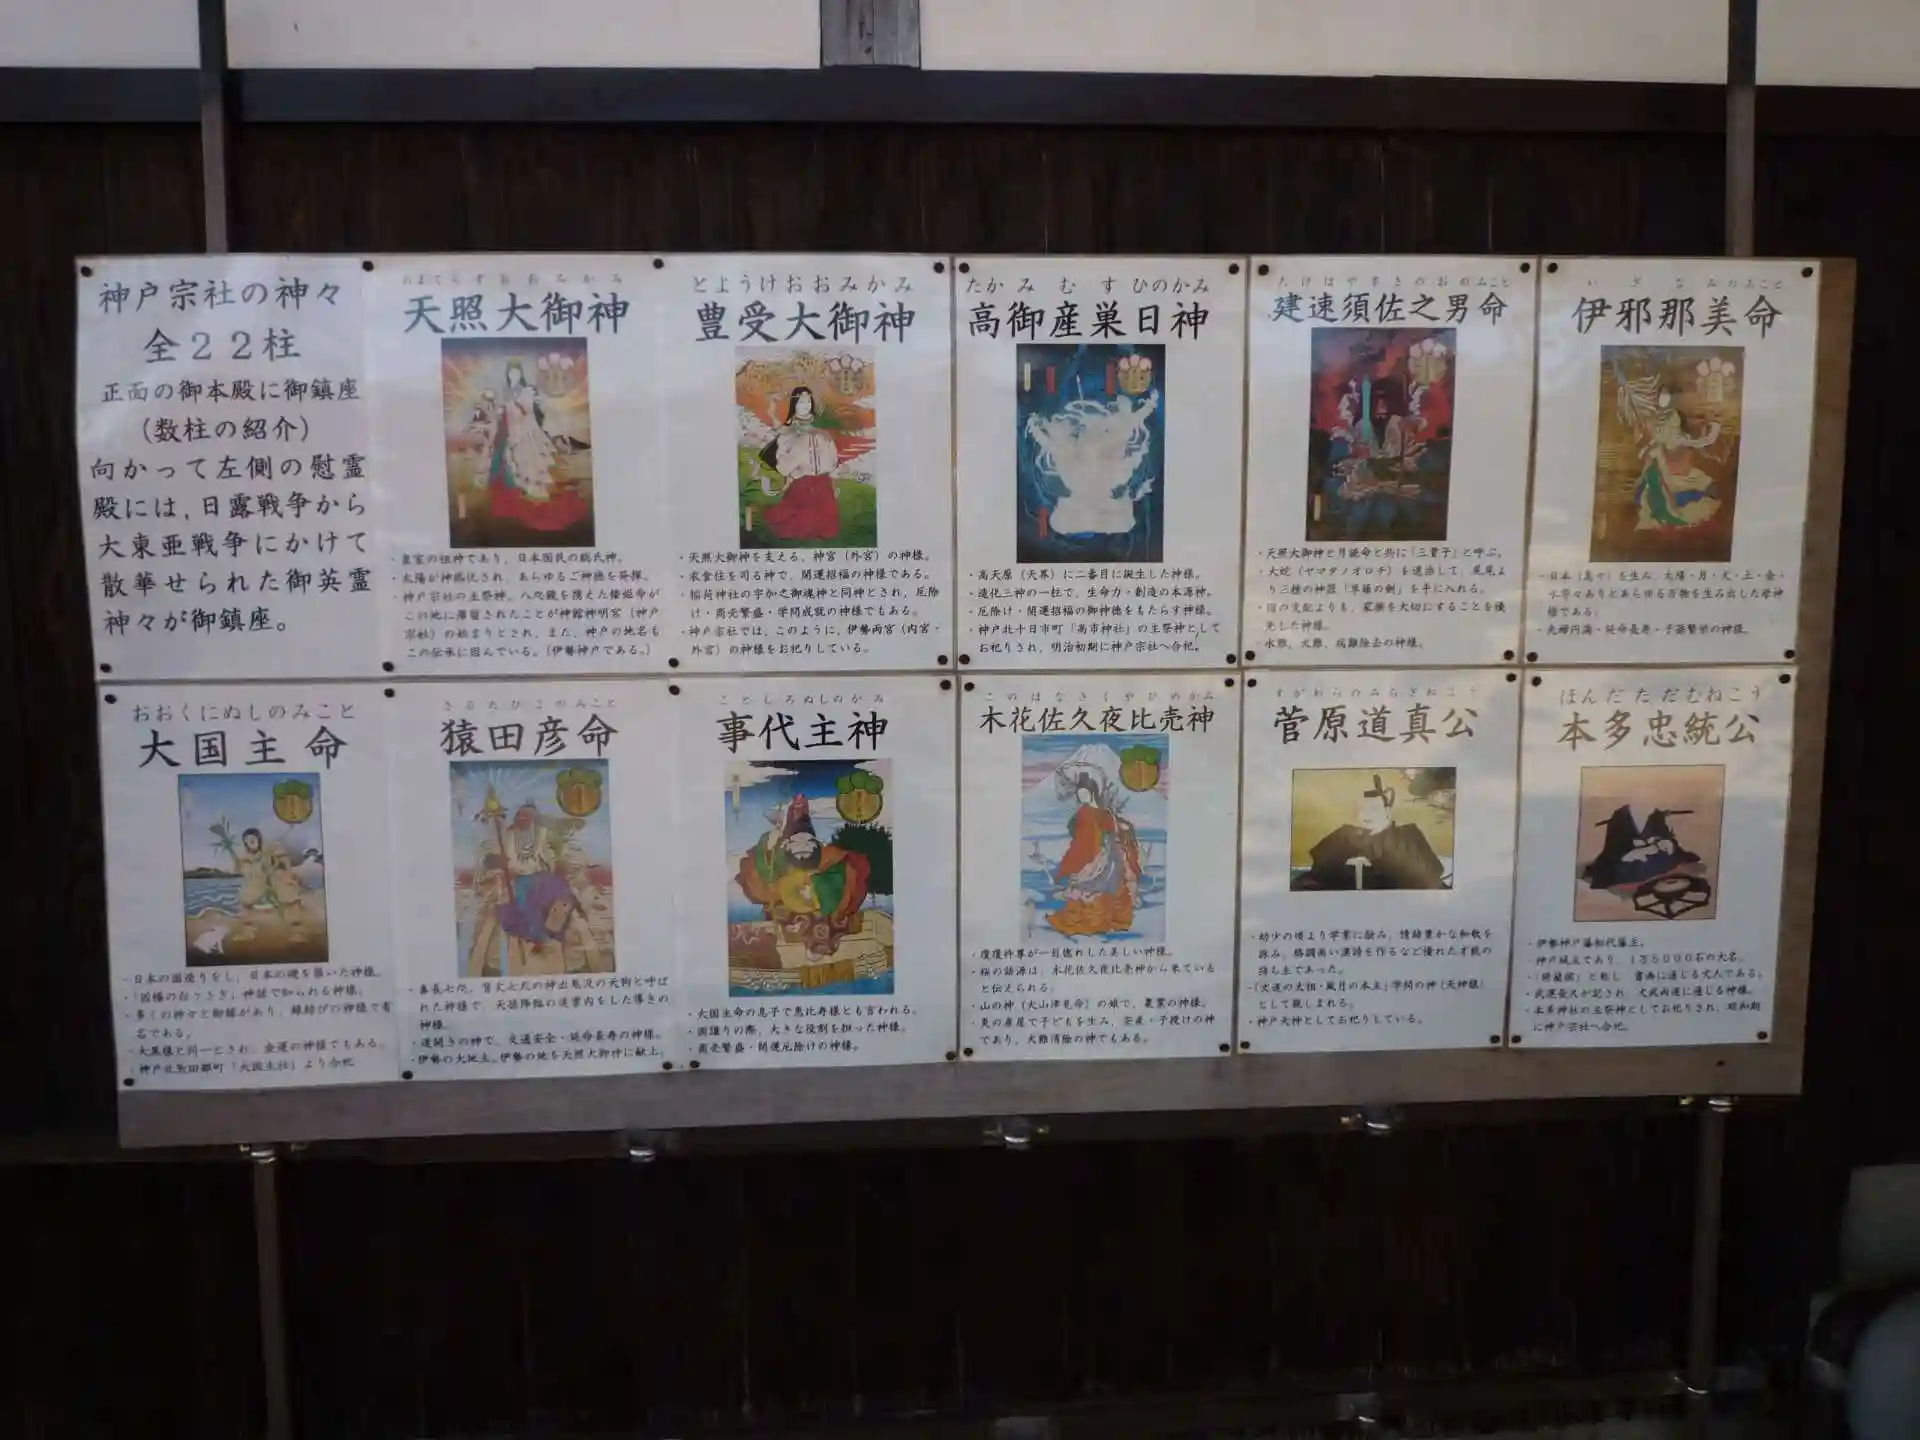 神戸宗社の神々
全22柱
正面の御本殿に御鎮座
（数柱の紹介）
向かって左側の慰霊
殿には，日露戦争から
大東亜戦争にかけて
散華せられた御英霊
神々が御鎮座。
あまてらすおおみかみ
天照大御神
・皇室の祖神であり，日本国民の総氏神。
・太陽が神格化され，あらゆるご神徳を発揮。
・神戸宗社の主祭神。八咫鏡を携えた倭姫命が
この地に滞留されたことが神館神明宮（神戸
宗社）の始まりとされ，また，神戸の地名も
この伝承に因んでいる。（伊勢神戸である。）
とようけおおみかみ
豊受大御神
・天照大御神を支える，神宮（外宮）の神様。
・衣食住を司る神で，開運招福の神様である。
・稲荷神社の宇加之御魂神と同神とされ，厄除
け・商売繁盛・学問成就の神様でもある。
・神戸宗社では，このように，伊勢両宮（内宮・
外宮）の神様をお祀りしている。
たかみむすひのかみ
高御産巣日神
・高天原（天界）に二番目に誕生した神様。
・造化三神の一柱で，生命力・創造の本源神。
・厄除け・開運招福の御神徳をもたらす神様。
・神戸北十日市町「高市神社」の主祭神として
お祀りされ，明治初期に神戸宗社へ合祀。
たけはやすさのおのみこと
建速須佐之男命
・天照大御神と月読命と共に「三貴子」と呼ぶ。
・大蛇（ヤマタノオロチ）を退治して，尾尾よ
り三種の神器「草薙の剣」を手に入れる。
・国の支配よりも，家族を大切にすることを優
先した神様。
・水難，火難，病難除去の神様。
いざなみのみこと
伊邪那美命
・日本（島々）を生み，太陽・月・火・土・金・
木等々ありとあらゆる万物を生み出した母神
様である。
・夫婦円満・延命長寿・子孫繁栄の神様。
おおくにぬしのみこと
大国主命
・日本の国造りをし，日本の礎を築いた神様。
・「因幡の白うさぎ」神話で知られる神様。
・多くの神々と御縁があり，縁結びの神様で有
名である。
・大黒様と同一とされ，金運の神様でもある。
・神戸北矢田部町「大国主社」より合祀
さるたひこのみこと
猿田彦命
・鼻長七咫，背丈七尺の神出鬼没の天狗と呼ば
れた神様で，天孫降臨の道案内をした導きの
神様。
・道開きの神で，交通安全・延命長寿の神様。
・伊勢の大地主。伊勢の地を天照大御神に献上。
ことしろぬしのかみ
事代主神
・大国主命の息子で恵比寿様とも言われる。
・国譲りの際，大きな役割を担った神様。
・商売繁盛・開運厄除けの神様。
このはなさくやひめかみ
木花佐久夜比売神
・瓊瓊杵尊が一目惚れした美しい神様。
・桜の語源は，木花佐久夜比売神から来ている
と伝えられる。
・山の神（大山津見命）の娘で，農業の神様。
・炎の産屋で子どもを生み，安産・子授けの神
であり，火難消除の神でもある。
すがわらのみちざねこう
菅原道真公
・幼少の頃より学業に励み，情緒豊かな和歌を
詠み，格調高い漢詩を作るなど優れた才能の
持ち主であった。
・「文道の大祖・風月の本主」学問の神（天神様）
として親しまれる。
・神戸天神としてお祀りしている。
ほんだただむねこう
本多忠統公
・伊勢神戸藩初代藩主。
・神戸城主であり，1万5000石の大名。
・「猗蘭候」と称し，書画に通じる文人である。
・武運長久が記され，文武両道に通じる神様。
・本多神社の主祭神としてお祀りされ，昭和期
に神戸宗社へ合祀。